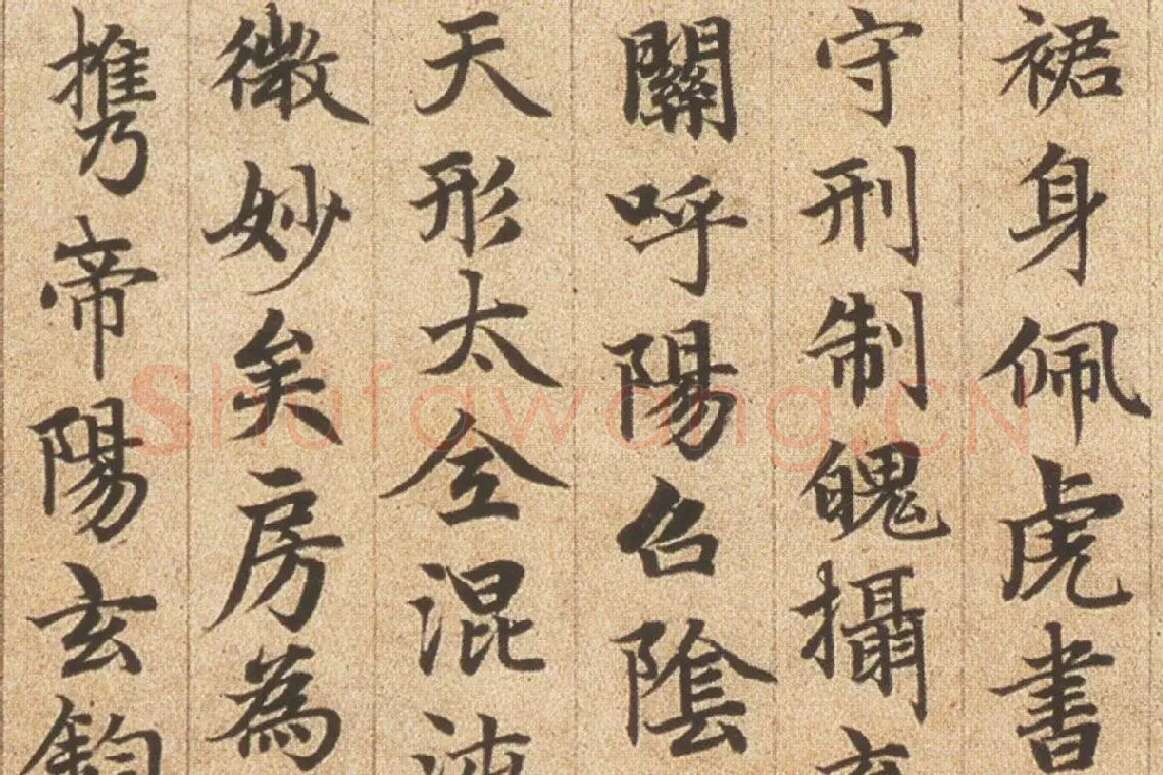 裙身佩虎書
守刑制魄攝
關呼陽召陰
天形太仝混
微妙矣房為
携帝陽玄鈞
Shufawang.CN